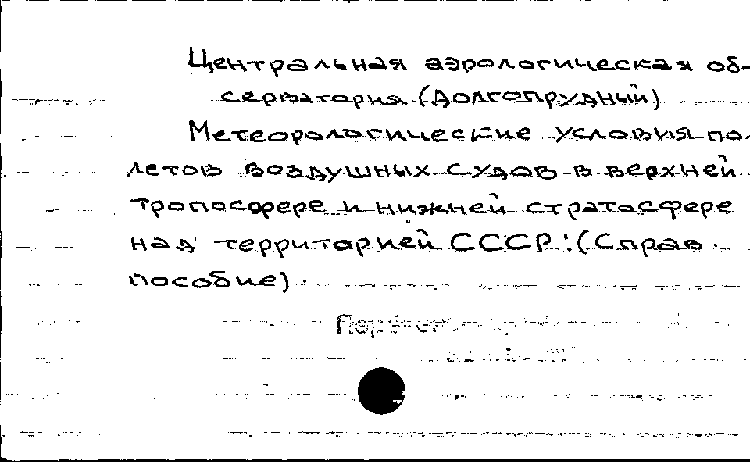 Центральная аэрологическая об-
серватория (Долгопрудный)
Метеорологические условия по-
летов воздушных судов в верхней
тропосфере и нижней стратосфере
над территорией СССР: (Справ.
пособие).